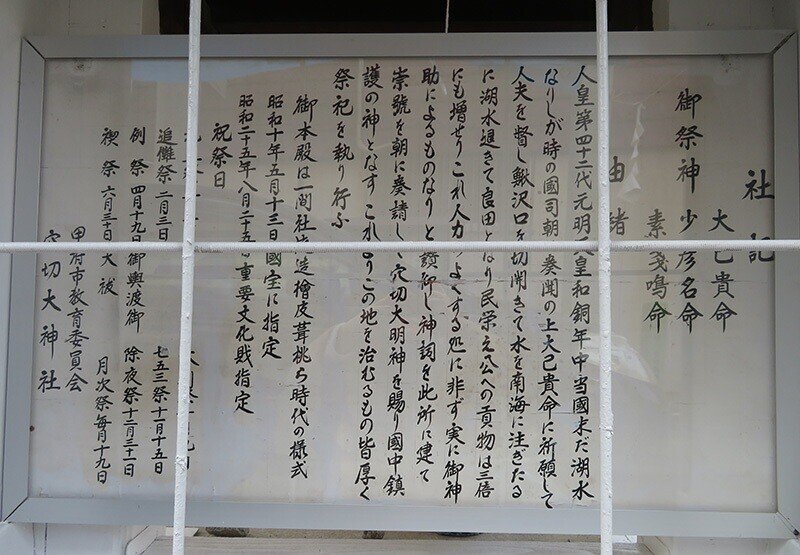 社記
大己貴命
御祭神 少彦名命
素戔嗚命
由緒
人皇第四十二代元明天皇和銅年中当國未だ湖水
なりしが時の國司朝 奏聞の上大己貴命に祈願して
人夫を督し鰍沢口を切開きて水を南海に注ぎたる
に湖水退きて良田となり民栄え公への貢物は三倍
にも増せりこれ人力 よくする処に非ず実に御神
助によるものなりと讃仰し神詞を此所に建て
崇號を朝に奏請し 穴切大明神を賜り國中鎮
護の神となす これ よりこの地を治むるもの皆厚く
祭祀を執り行ふ
御本殿は一間社流造檜皮葺桃山時代の様式
昭和十年五月十三日國宝に指定
昭和二十五年八月二十 重要文化財指定
祝祭日
追儺祭 二月三日
七五三祭十一月十五日
例祭 四月十九日御輿渡御
除夜祭十二月三十一日
禊祭 六月三十日大祓
月次祭毎月十九日
甲府市教育委員会
穴切大神社